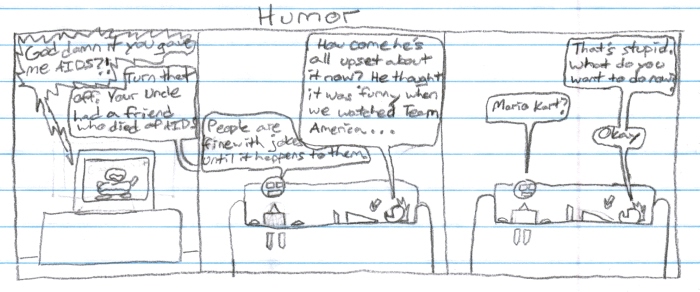 Humor
God damn it you gave
me AIDS?!!
Turn that
off. Your Uncle
had a friend
who died of AIDS
People are
fine with jokes
until it happens to them.
How come he's
all upset about
it now? He thought
it was funny when
we watched Team
America...
Mario Kart?
That's stupid.
What do you
want to do now?
Okay